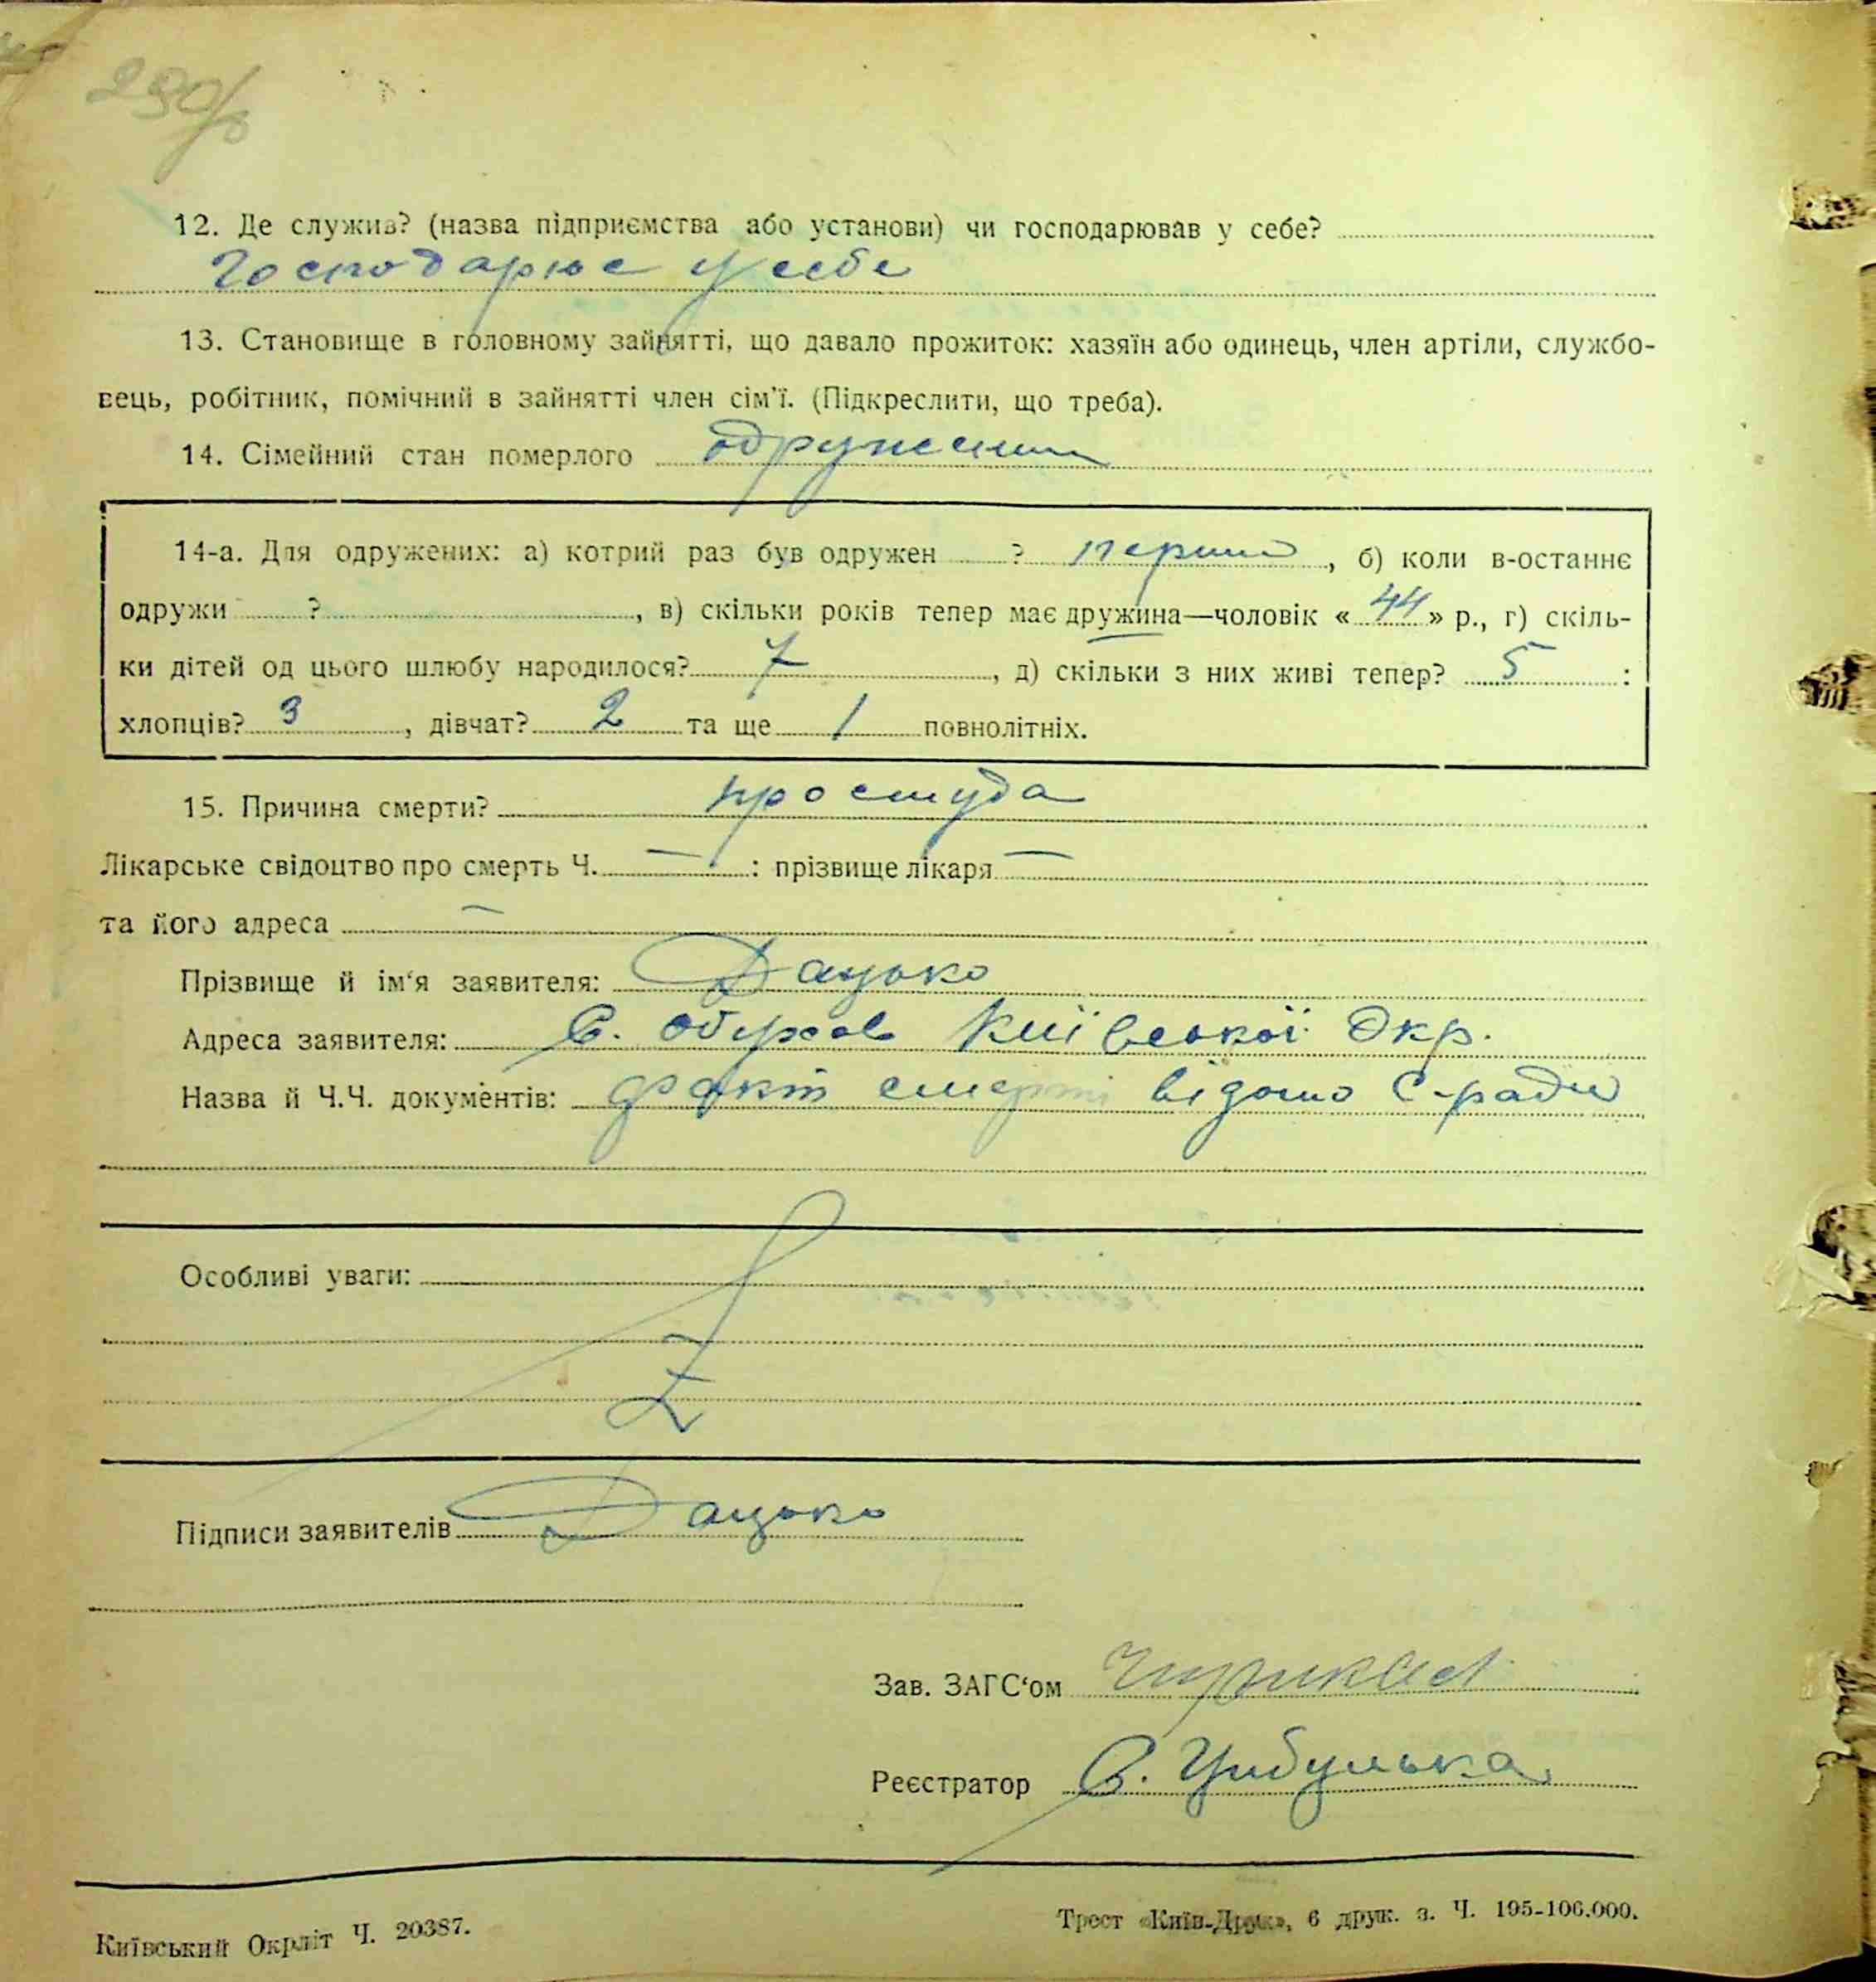 12. Де служив? (назва підприємства або установи) чи господарював у себе?
господарює у себе
13. Становище в головному зайнятті, що давало прожиток: хазяїн або одинець, член артіли, службо-
вець, робітник, помічний в зайнятті член сім'ї. (Підкреслити, що треба).
14. Сімейний стан померлого одружений
14-а. Для одружених: а) котрий раз був одружен ? перший, б) коли в-останнє
одружи ? , в) скільки років тепер має дружина—чоловік «44» р., г) скіль-
ки дітей од цього шлюбу народилося? 7, д) скільки з них живі тепер? 5 :
хлопців? 3, дівчат? 2 та ще 1 повнолітніх.
15. Причина смерти? простуда
Лікарське свідоцтво про смерть Ч. — : прізвище лікаря —
та його адреса —
Прізвище й ім'я заявителя: Дацько
Адреса заявителя: С. Обухов Київської Окр.
Назва й Ч.Ч. документів: факт смерті відомо С-ради
Особливі уваги:
Підписи заявителів Дацько
Зав. ЗАГС'ом
Реєстратор С. Цибулька
Київський Окрліт Ч. 20387.
Трест «Київ-Друк», 6 друк. з. Ч. 195-106.000.